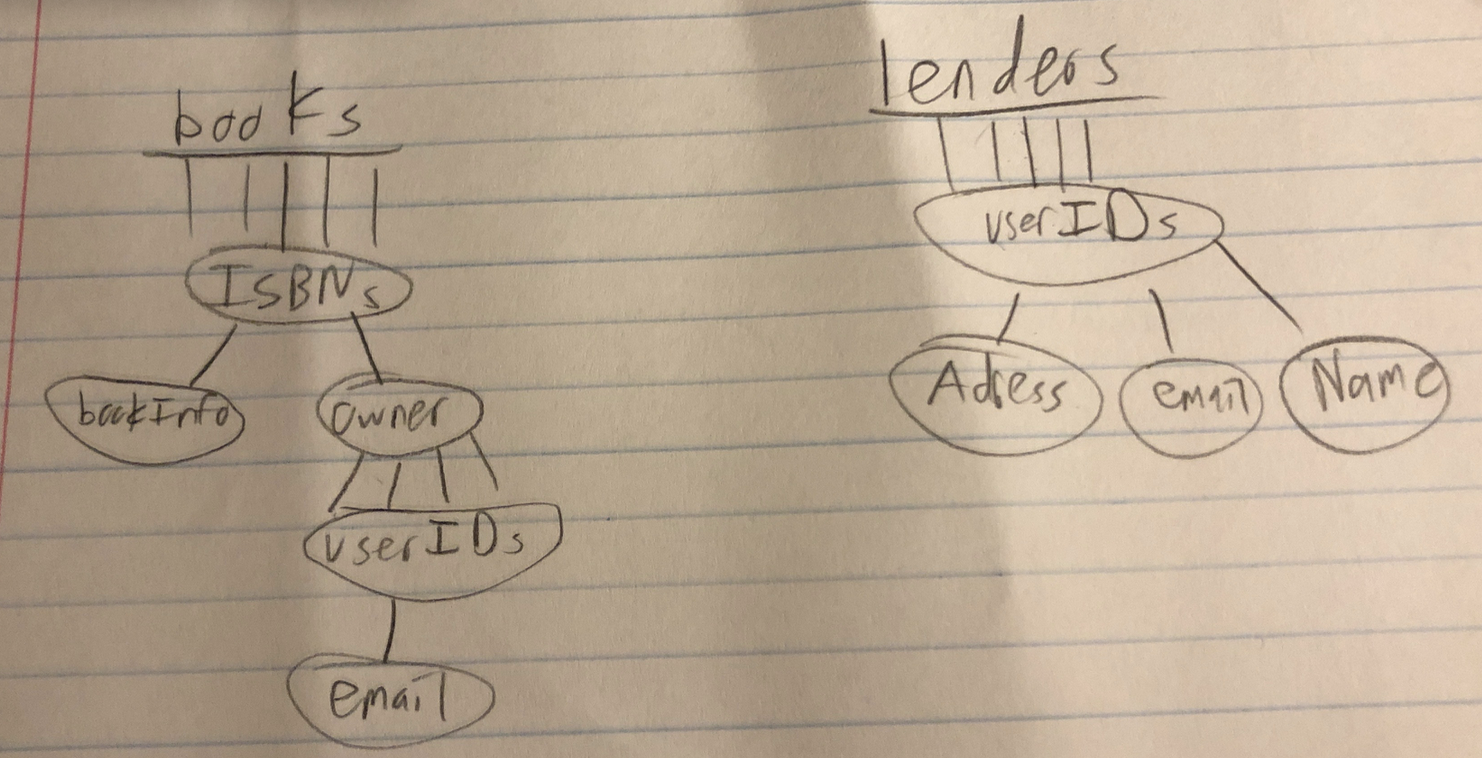 books
ISBNs
bookInfo
owner
userIDs
email
lenders
userIDs
Adress
email
Name